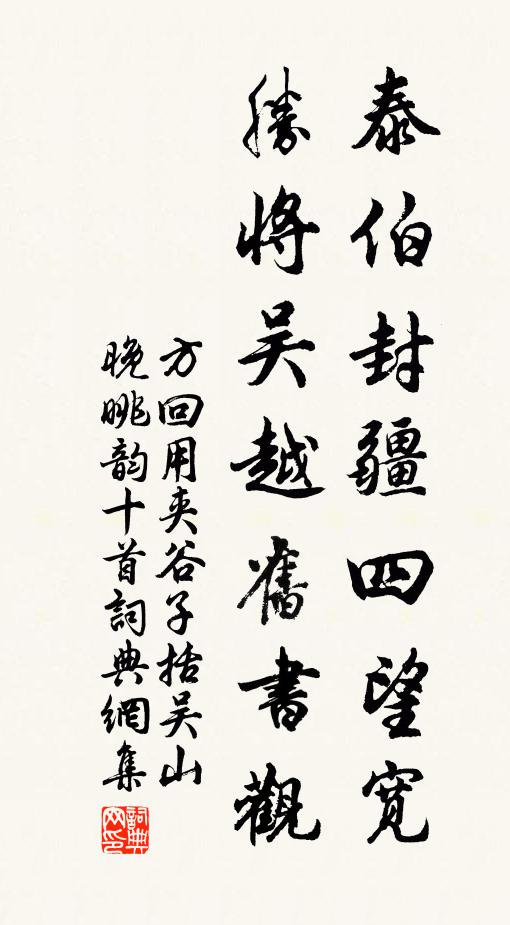 泰伯封疆四望寬
勝將吳越舊書觀
方回用夾谷子括吳山
晚眺韵十首詞典網集
詞典網印